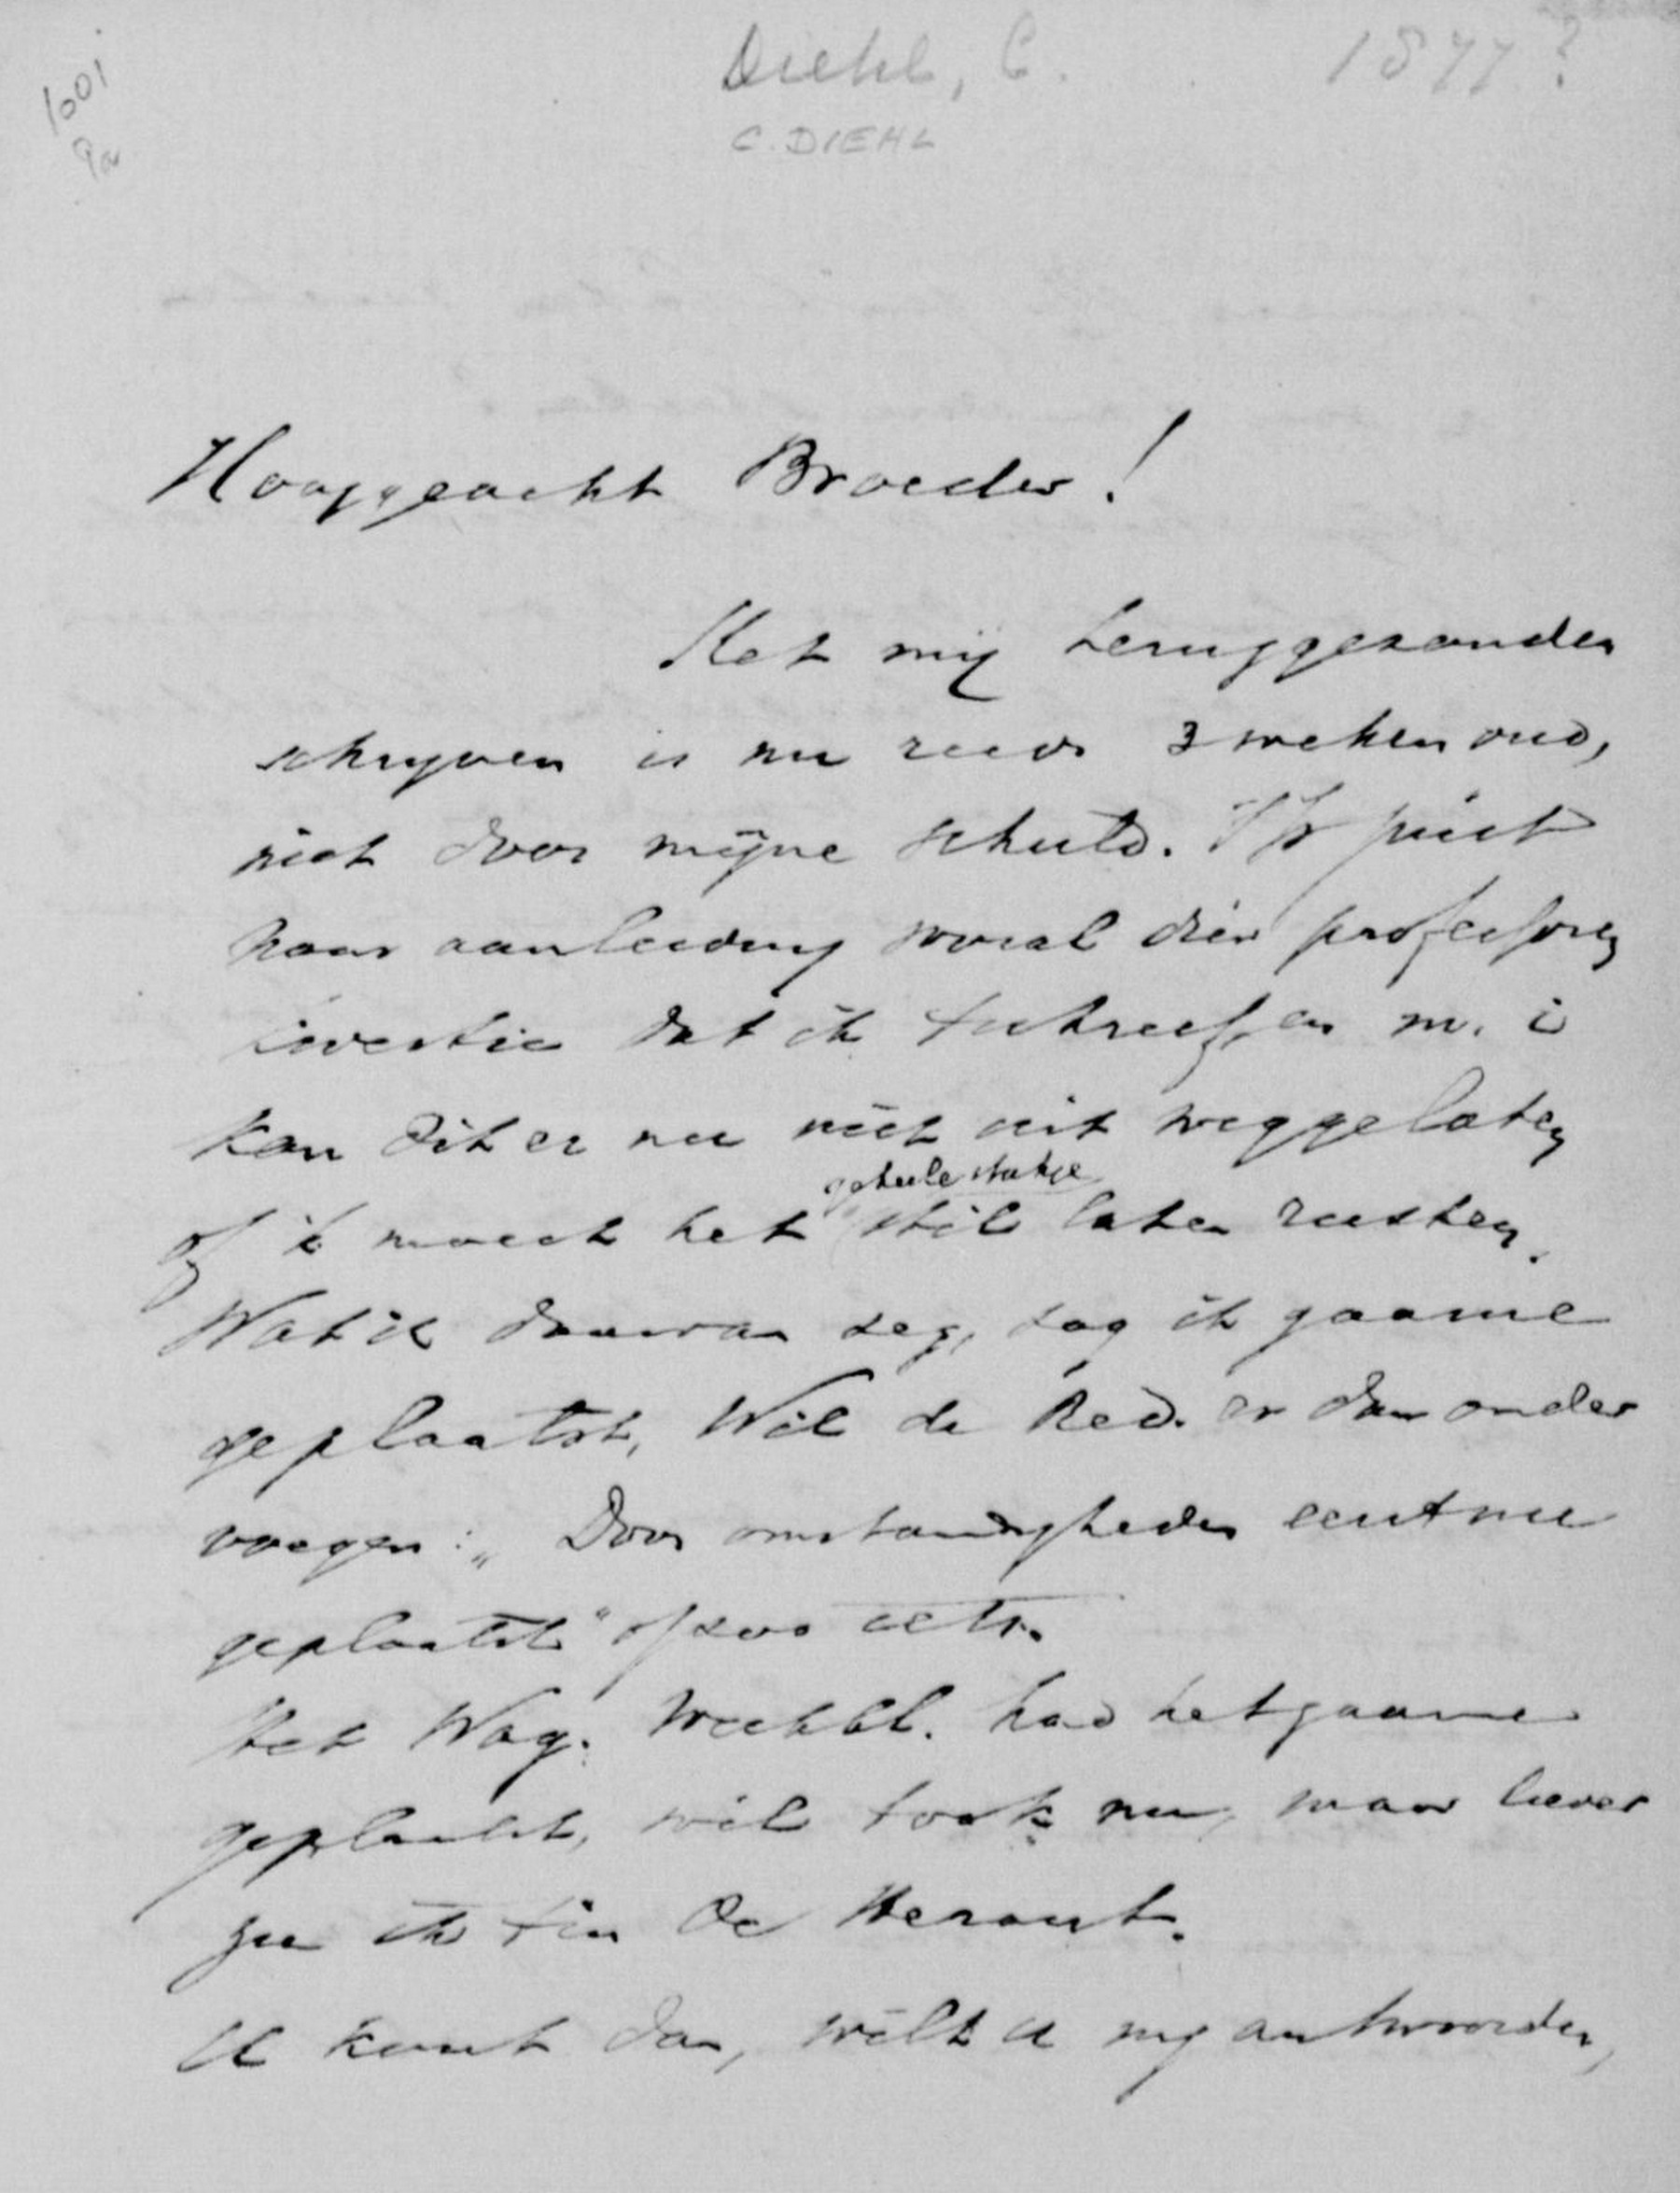 Diehl, C. 1877?
C. DIEHL
1001
Hooggeacht Broeder!
Het mij teruggezonden
schrijven is nu reeds 3 weken oud,
niet door mijne schuld. 't Is juist
naar aanleiding vooral dier professoren
dat ik 't schreef, en m. i
kan dit er nu niet uit weggelaten
of 'k moest het geheele stukje
stil laten rusten.
Wat ik daarvan zeg, zag ik gaarne
geplaatst, Wil de Red. er dan onder
voegen: „Door omstandigheden eerst nu
geplaatst" of zoo iets.
Het Wag. Weekbl. had het gaarne
geplaatst, wil 't ook nu, maar liever
zie ik 't in De Heraut.
U kunt dan, wilt u mij antwoorden,